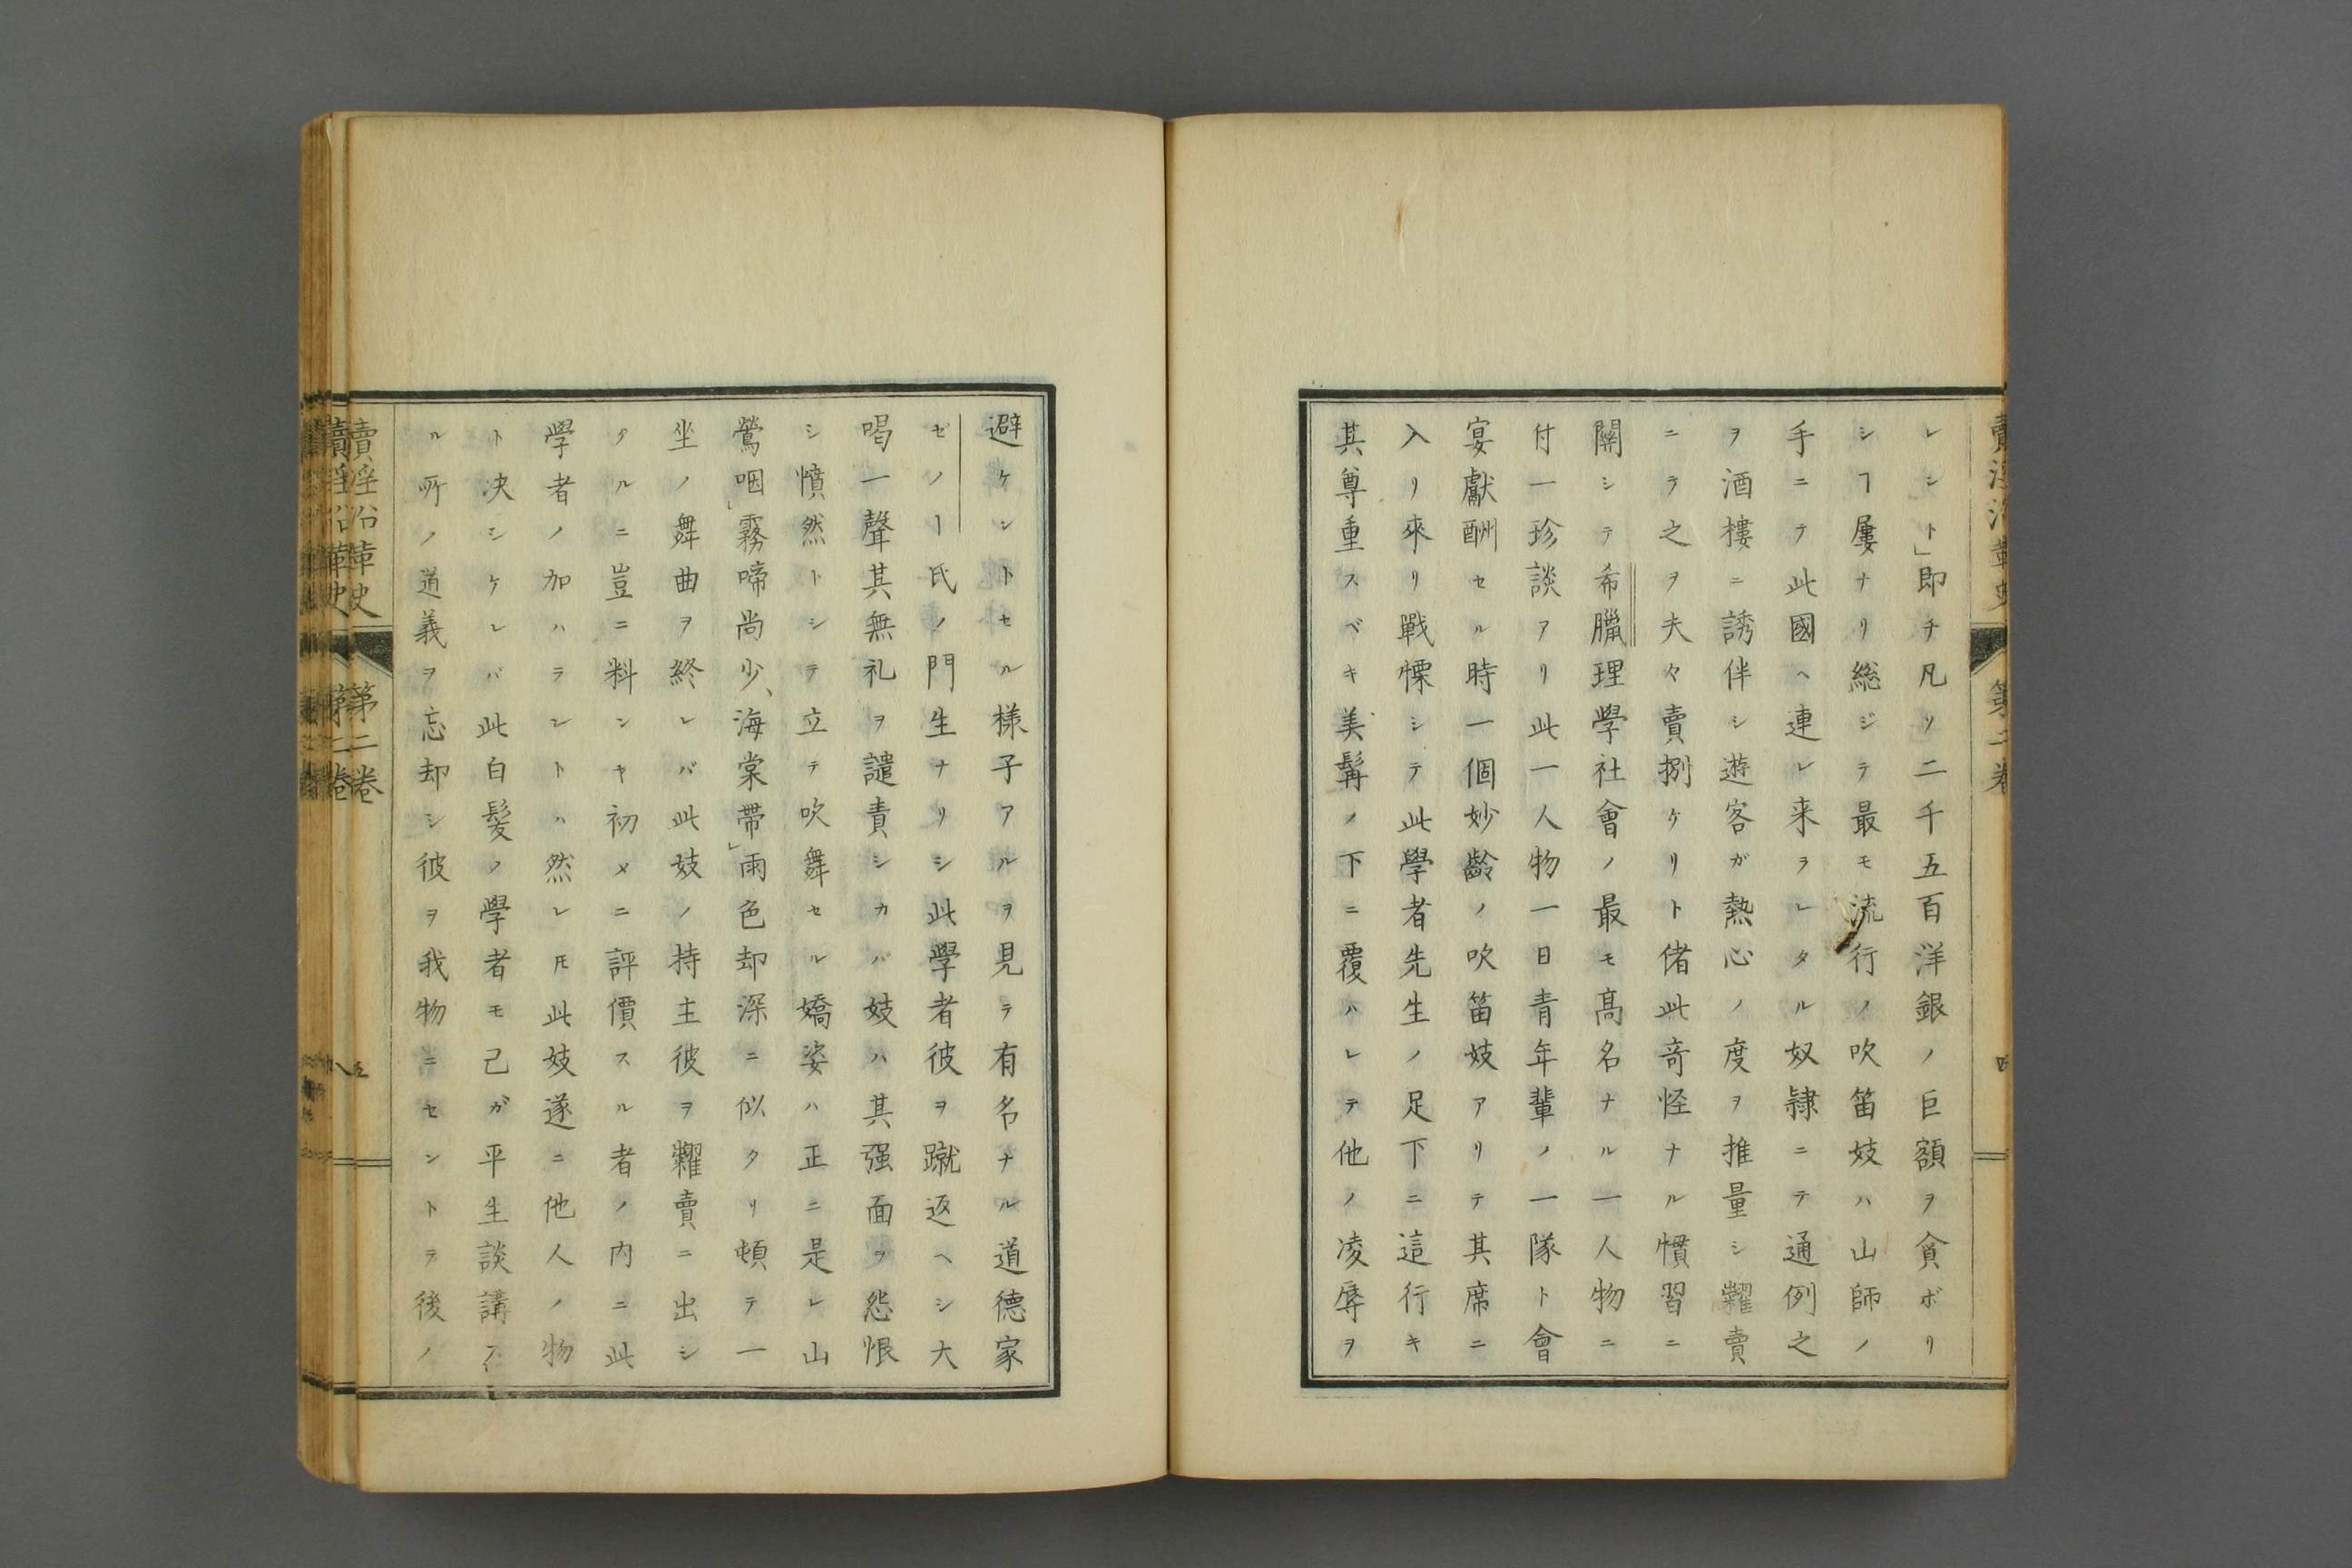 レシト」即チ凡ソ二千五百洋銀ノ巨額ヲ貪ボリ
シヿ屢ナリ総ジテ最モ流行ノ吹笛妓ハ山師ノ
手ニテ此國ヘ連レ来ヲレタル奴隷ニテ通例之
ヲ酒樓ニ誘伴シ遊客ガ熱心ノ度ヲ推量シ糶賣
ニテ之ヲ夫々賣捌ケリト偖此奇怪ナル慣習ニ
關シテ希臘理學社會ノ最モ髙名ナル一人物ニ
付一珍談アリ此一人物一日青年輩ノ一隊ト會
宴獻酬セル時一個妙齡ノ吹笛妓アリテ其席ニ
入リ來リ戰慄シテ此學者先生ノ足下ニ這行キ
其尊重スベキ美髯ノ下ニ覆ハレテ他ノ凌辱ヲ
避ケントセル樣子アルヲ見テ有名ナル道德家
ゼノー氏ノ門生ナリシ此學者彼ヲ蹴返ヘシ大
喝一聲其無礼ヲ譴責シカバ妓ハ其强面ヲ怨恨
シ憤然トシテ立テ吹舞セル嬌姿ハ正ニ是レ山
鶯咽」霧啼尚少、海棠帶」雨色却深ニ似タリ頓テ一
坐ノ舞曲ヲ終レバ此妓ノ持主彼ヲ糶賣ニ出シ
タルニ豈ニ料ンヤ初メニ評價スル者ノ内ニ此
學者ノ加ハラントハ然レ𪜈此妓遂ニ他人ノ物
ト决シケレバ此白髮ノ學者モ己ガ平生談講ス
ル所ノ道義ヲ忘却シ彼ヲ我物ニセントテ後ノ
賣淫沿革史 第二卷 五